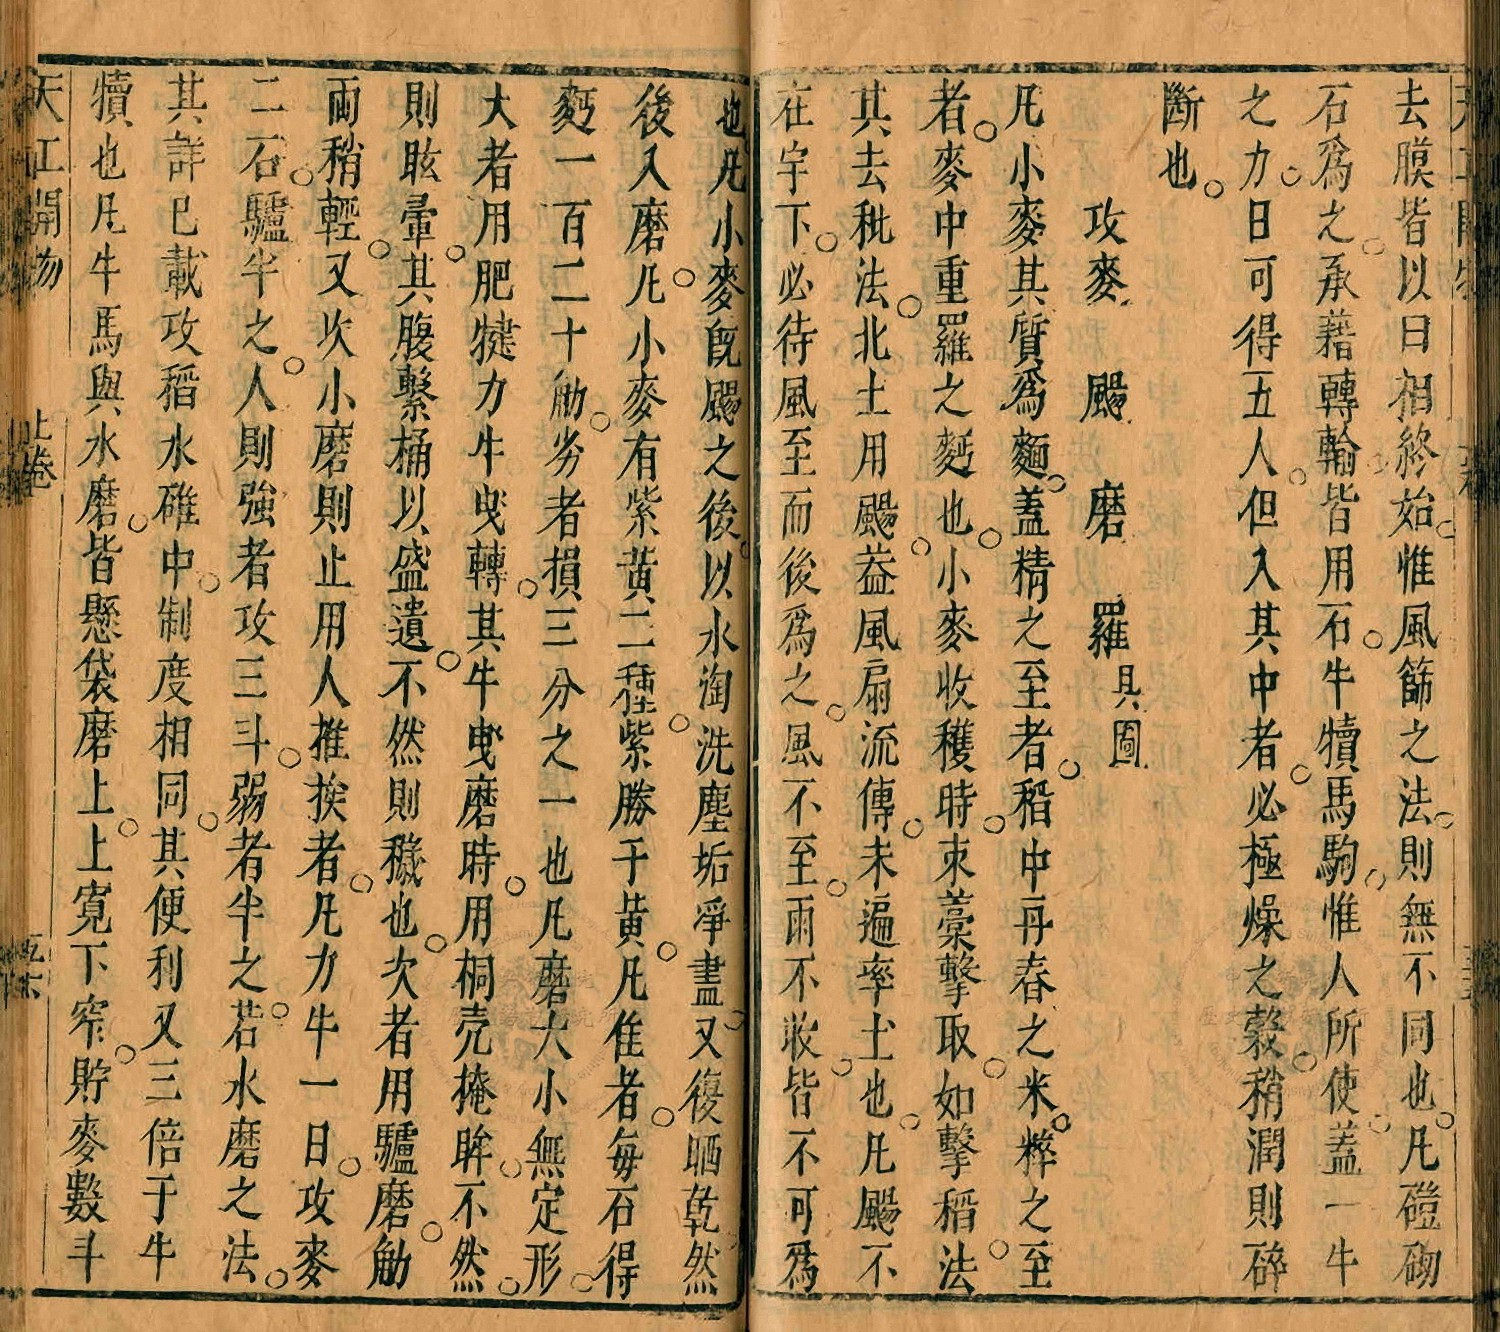 去膜皆以臼相終始惟風篩之法則無不同也○凡磑砌
石爲之○承藉轉輪皆用石○牛犢馬駒○惟人所使○蓋一牛
之力○日可得五人○但入其中者○必極燥之穀○稍潤則碎
斷也○
攻麥 颺 磨 羅具圖
凡小麥其質爲麵○蓋精之至者○稻中再舂之米○粹之至
者○麥中重羅之麪也○小麥收穫時○束藁擊取○如擊稻法○
其去秕法○北土用颺○葢風扇流傳○未遍率土也○凡颺不
在宇下○必待風至而後爲之○風不至○雨不收○皆不可爲
也○凡小麥旣颺之後○以水淘洗塵垢淨盡○又復晒乾○然
後入磨○凡小麥有紫黄二種○紫勝于黄○凡佳者○每石得
麪一百二十觔○劣者損三分之一也○凡磨大小無定形○
大者用肥犍力牛曳轉○其牛曳磨時○用桐壳掩眸○不然○
則眩暈○其腹繫桶以盛遺○不然則穢也○次者用驢磨○觔
兩稍輕○又次小磨○則止用人推挨者○凡力牛一日攻麥
二石○驢半之○人則強者攻三斗○弱者半之○若水磨之法○
其詳已載攻稻水碓中○制度相同○其便利又三倍于牛
犢也○凡牛馬與水磨○皆懸袋磨上○上寛下窄○貯麥數斗
天工開物 上卷 五六